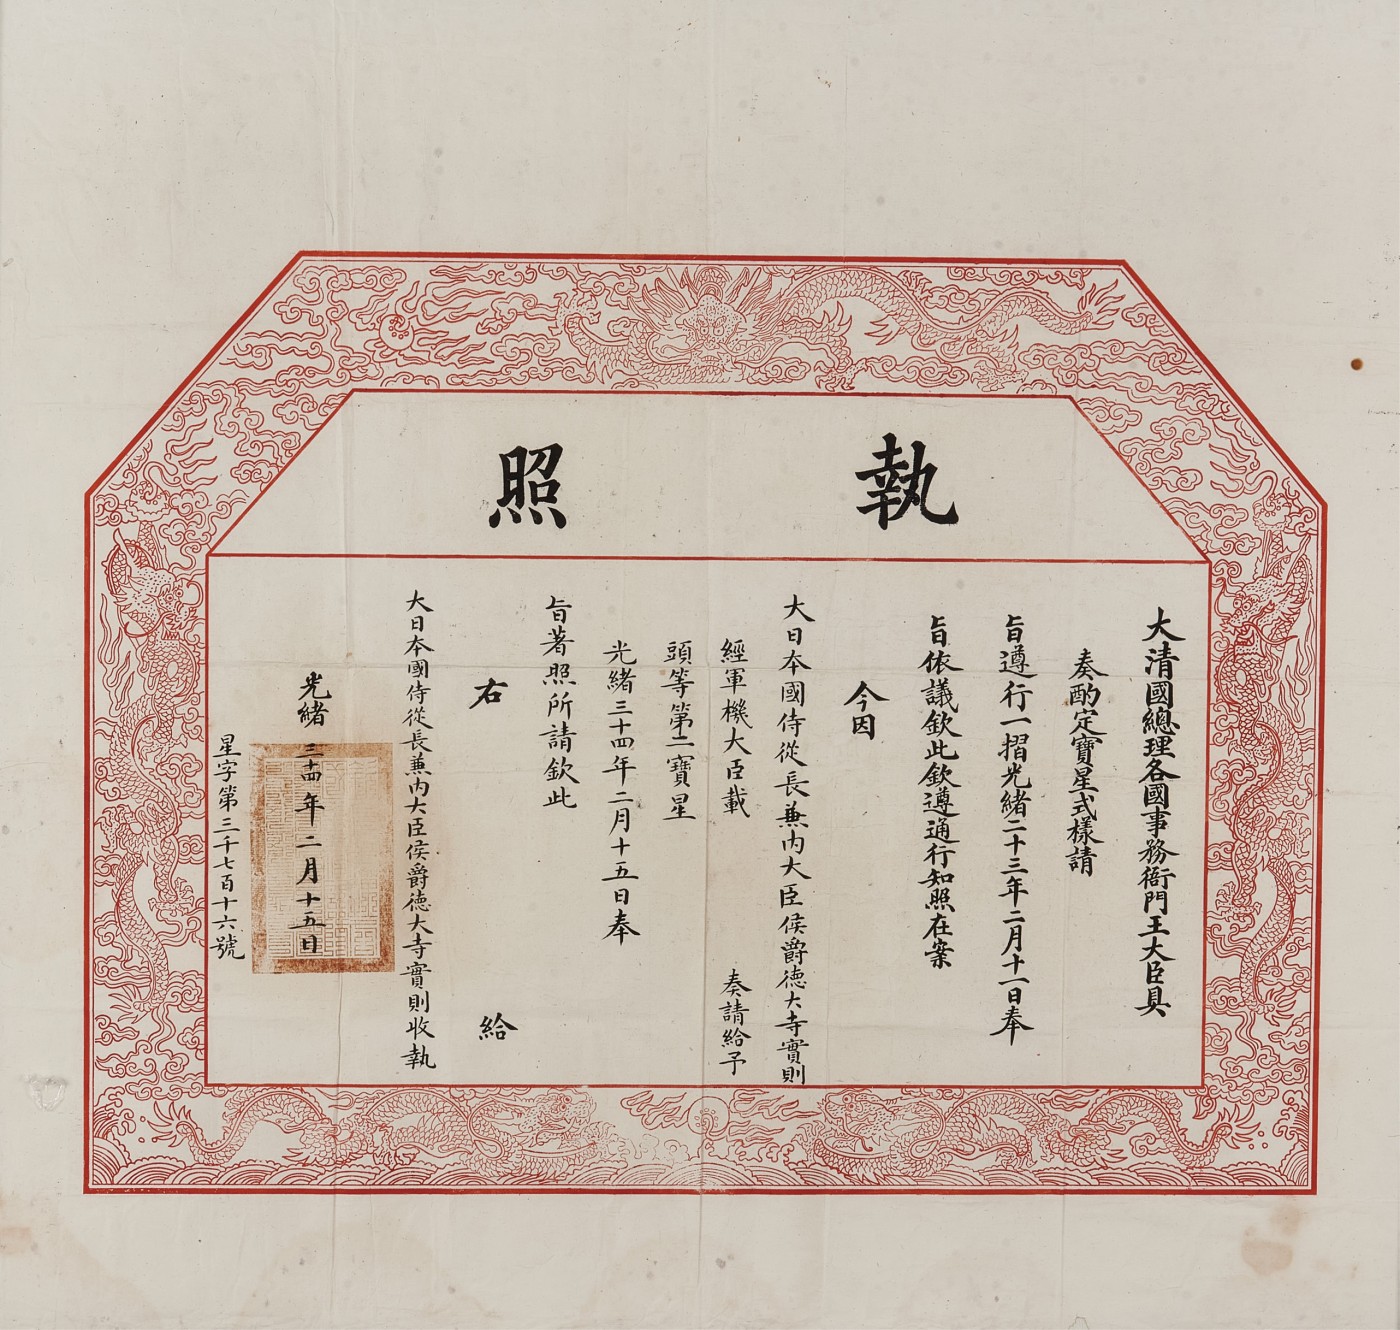 執照
大清國總理各國事務衙門王大臣具
奏酌定寶星式樣請
旨遵行一摺光緒二十三年二月十一日奉
旨依議欽此欽遵通行知照在案
今因
大日本國侍從長兼內大臣侯爵德大寺實則
經軍機大臣載 奏請給予
頭等第二寶星
光緒三十四年二月十五日奉
旨著照所請欽此
右 給
大日本國侍從長兼內大臣侯爵德大寺實則收執
光緒三十四年二月十五日
星字第三千七百十六號